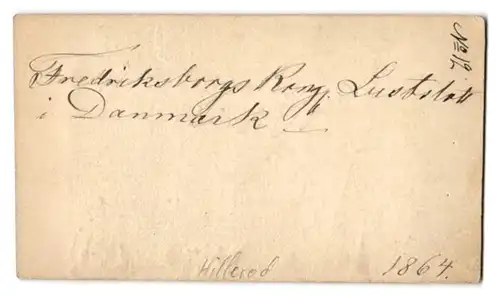 No 12.
Fredriksborgs Kong. Lustslott
i Danmark
Hillerød
1864.